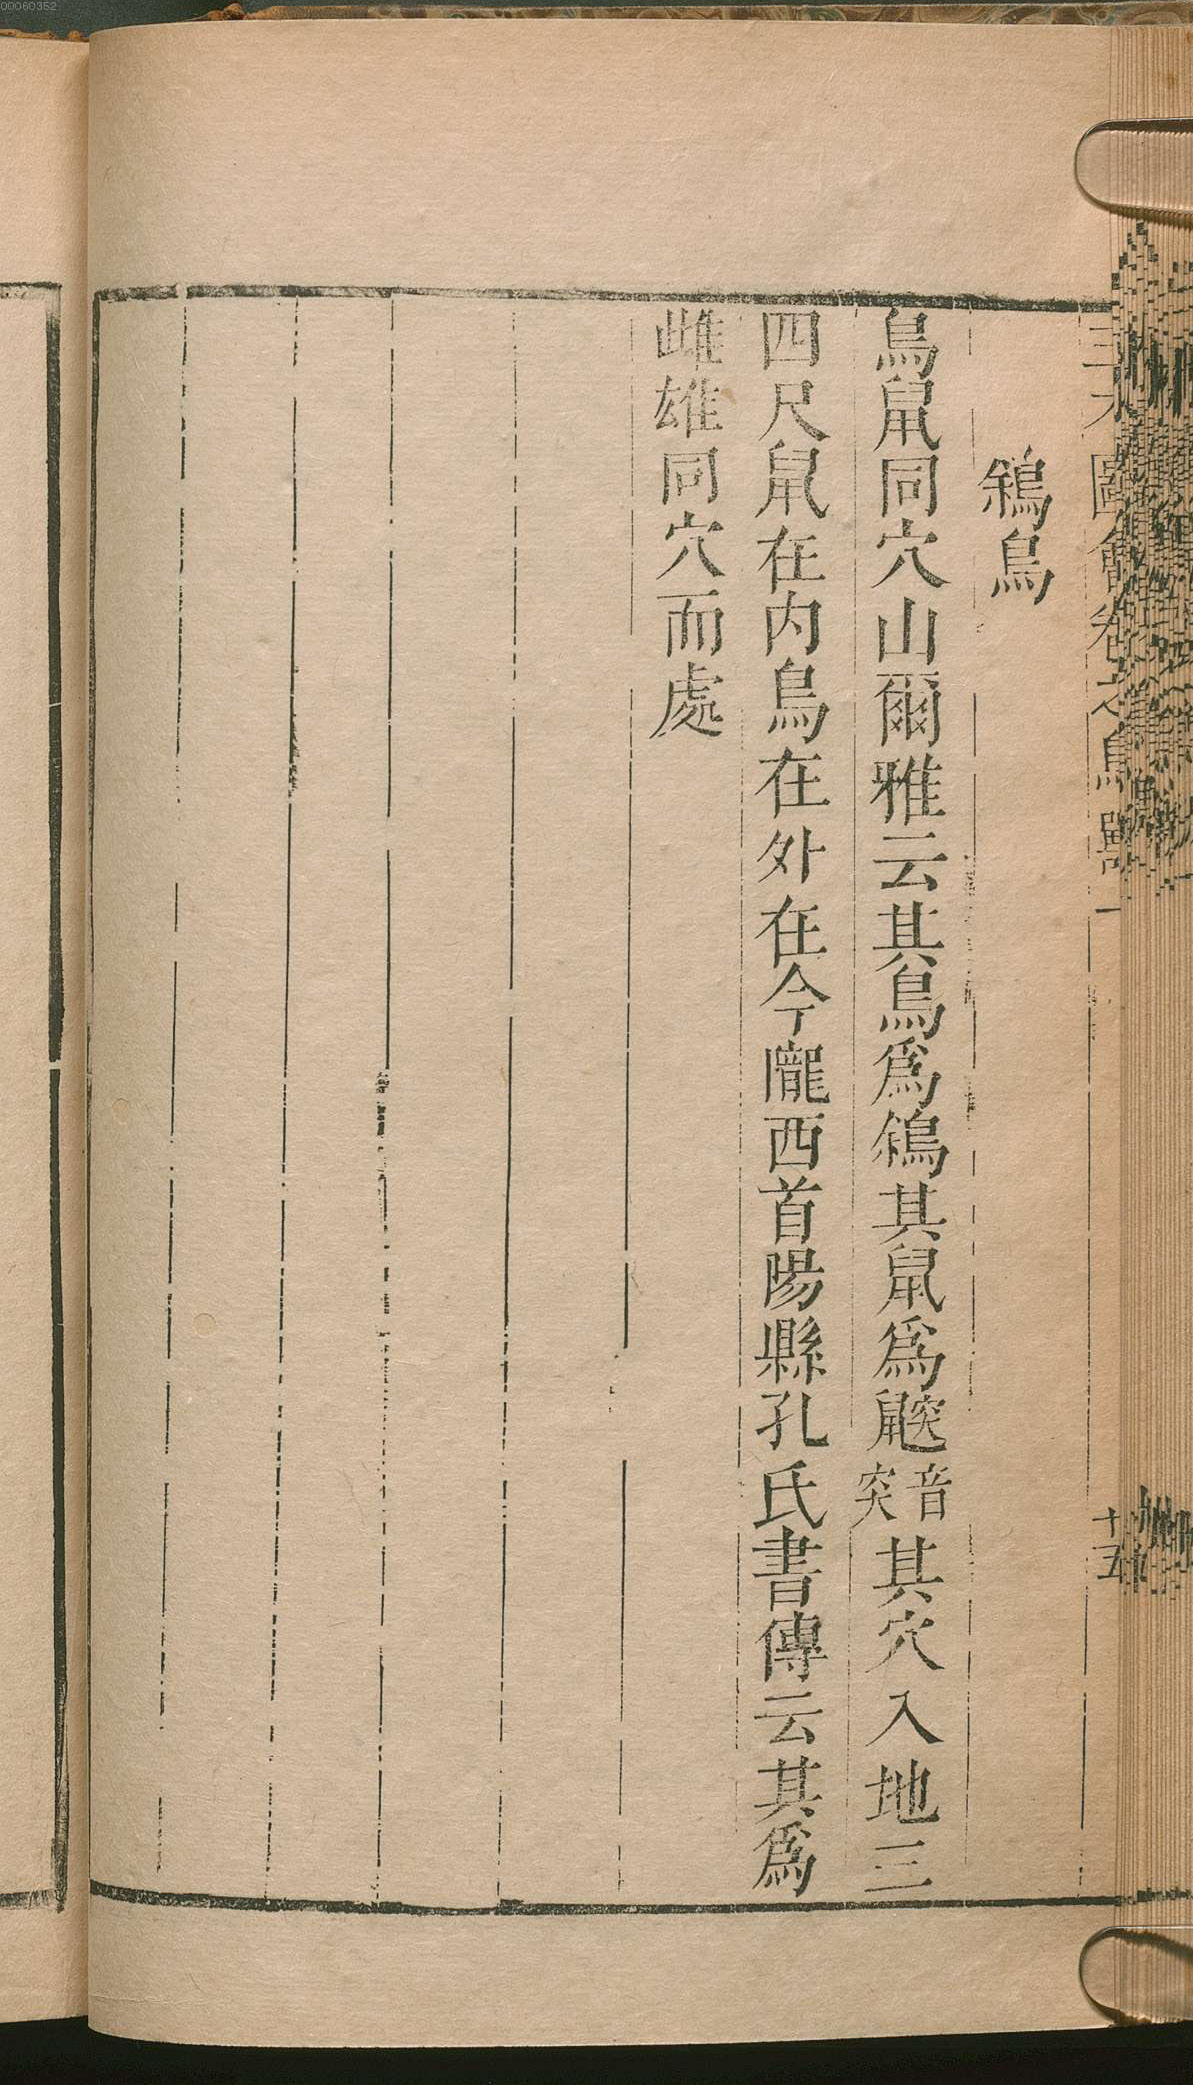 00060352
三才圖會卷之鳥獸一
十五
鵌鳥
鳥鼠同穴山爾雅云其鳥爲鵌其鼠爲鼵音突其穴入地三
四尺鼠在内鳥在外在今隴西首陽縣孔氏書傳云其爲
雌雄同穴而處